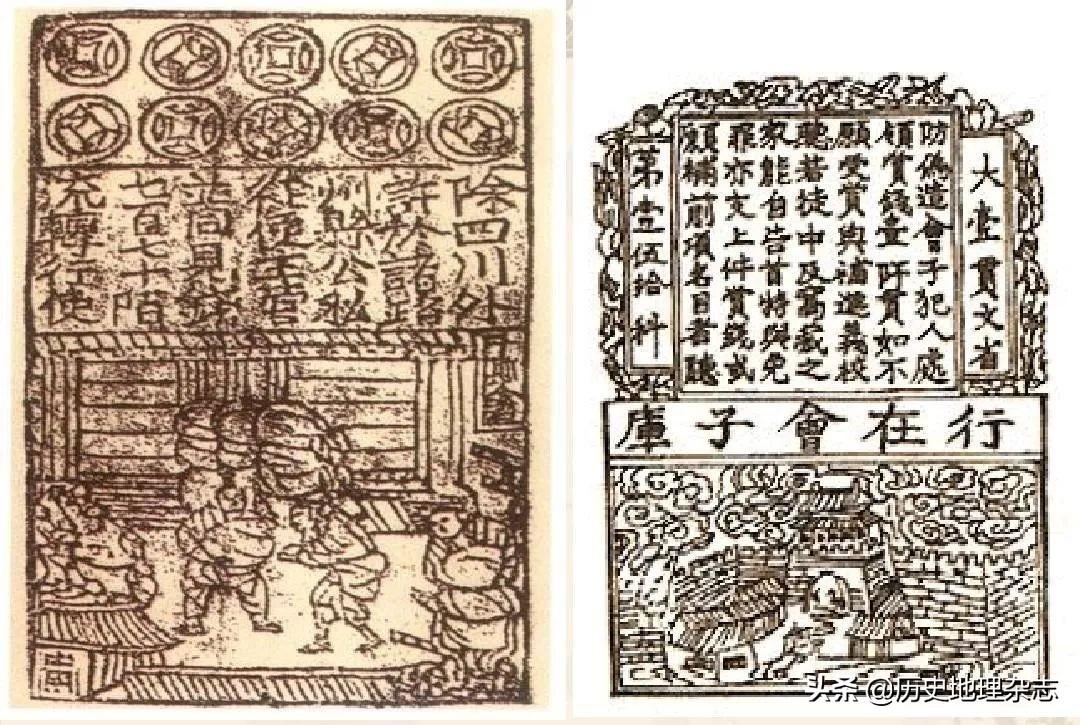 除四川外
許於諸路
州縣公私
從便主管
並同見錢
七百七十陌
流轉行使
大壹貫文省
防偽造會子犯人處
領賞錢壹阡貫如不
願受賞與補進義校
聽若徒中及窩藏之
家能自告首特與免
罪亦支上件賞錢或
願補前項名目者聽
第壹伍拾料
行在會子庫
头条 @历史地理杂志